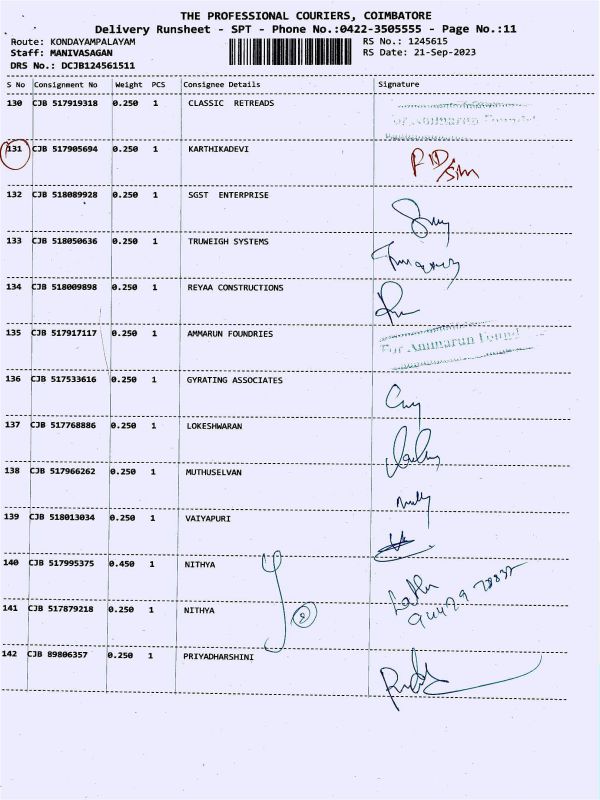 THE PROFESSIONAL COURIERS, COIMBATORE
Delivery Runsheet - SPT - Phone No.:0422-3505555 - Page No.:11
Route: KONDAYAMPALAYAM RS No.: 1245615
Staff: MANIVASAGAN RS Date: 21-Sep-2023
DRS No.: DCJB124561511
S No Consignment No Weight PCS Consignee Details Signature
130 CJB 517919318 0.250 1 CLASSIC RETREADS
131 CJB 517905694 0.250 1 KARTHIKADEVI
132 CJB 518089928 0.250 1 SGST ENTERPRISE
133 CJB 518050636 0.250 1 TRUWEIGH SYSTEMS
134 CJB 518009898 0.250 1 REYAA CONSTRUCTIONS
135 CJB 517917117 0.250 1 AMMARUN FOUNDRIES
For Ammarun Found
136 CJB 517533616 0.250 1 GYRATING ASSOCIATES
137 CJB 517768886 0.250 1 LOKESHWARAN
138 CJB 517966262 0.250 1 MUTHUSELVAN
139 CJB 518013034 0.250 1 VAIYAPURI
140 CJB 517995375 0.450 1 NITHYA
141 CJB 517879218 0.250 1 NITHYA 2
142 CJB 89806357 0.250 1 PRIYADHARSHINI